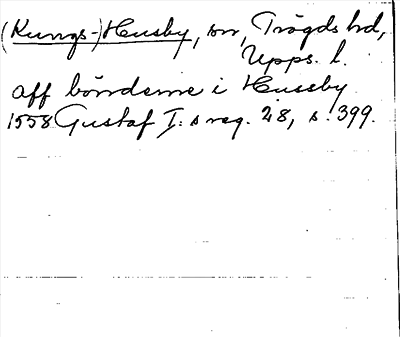 (Kungs-)Husby, sn, Trögds hd,
Upps. l.
aff bönderne i Hussby
1558 Gustaf I:s reg. 28, s. 399.